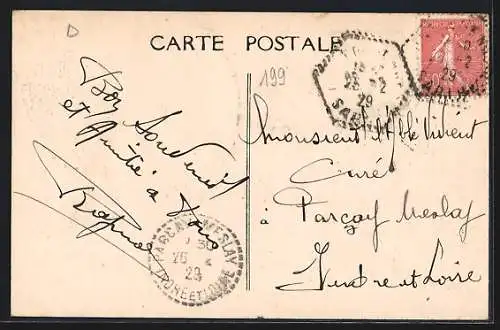 D
CARTE POSTALE
199
Bon Souvenir
et Amitié à
Vous
Monsieur l'Abbé
Curé
à Parçay Meslay
Indre et Loire
25 - 2
29
SAR
PARÇAY-MESLAY
26
29
INDRE ET LOIRE
29